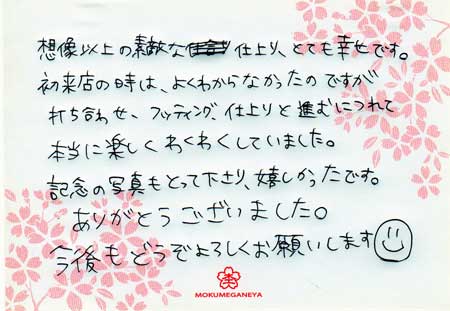 想像以上の素敵な仕上り、とても幸せです。
初来店の時は、よくわからなかったのですが
打ち合わせ、フッティング、仕上りと進むにつれて
本当に楽しくわくわくしていました。
記念の写真もとって下さり、嬉しかったです。
ありがとうございました。
今後もどうぞよろしくお願いします
MOKUMEGANEYA